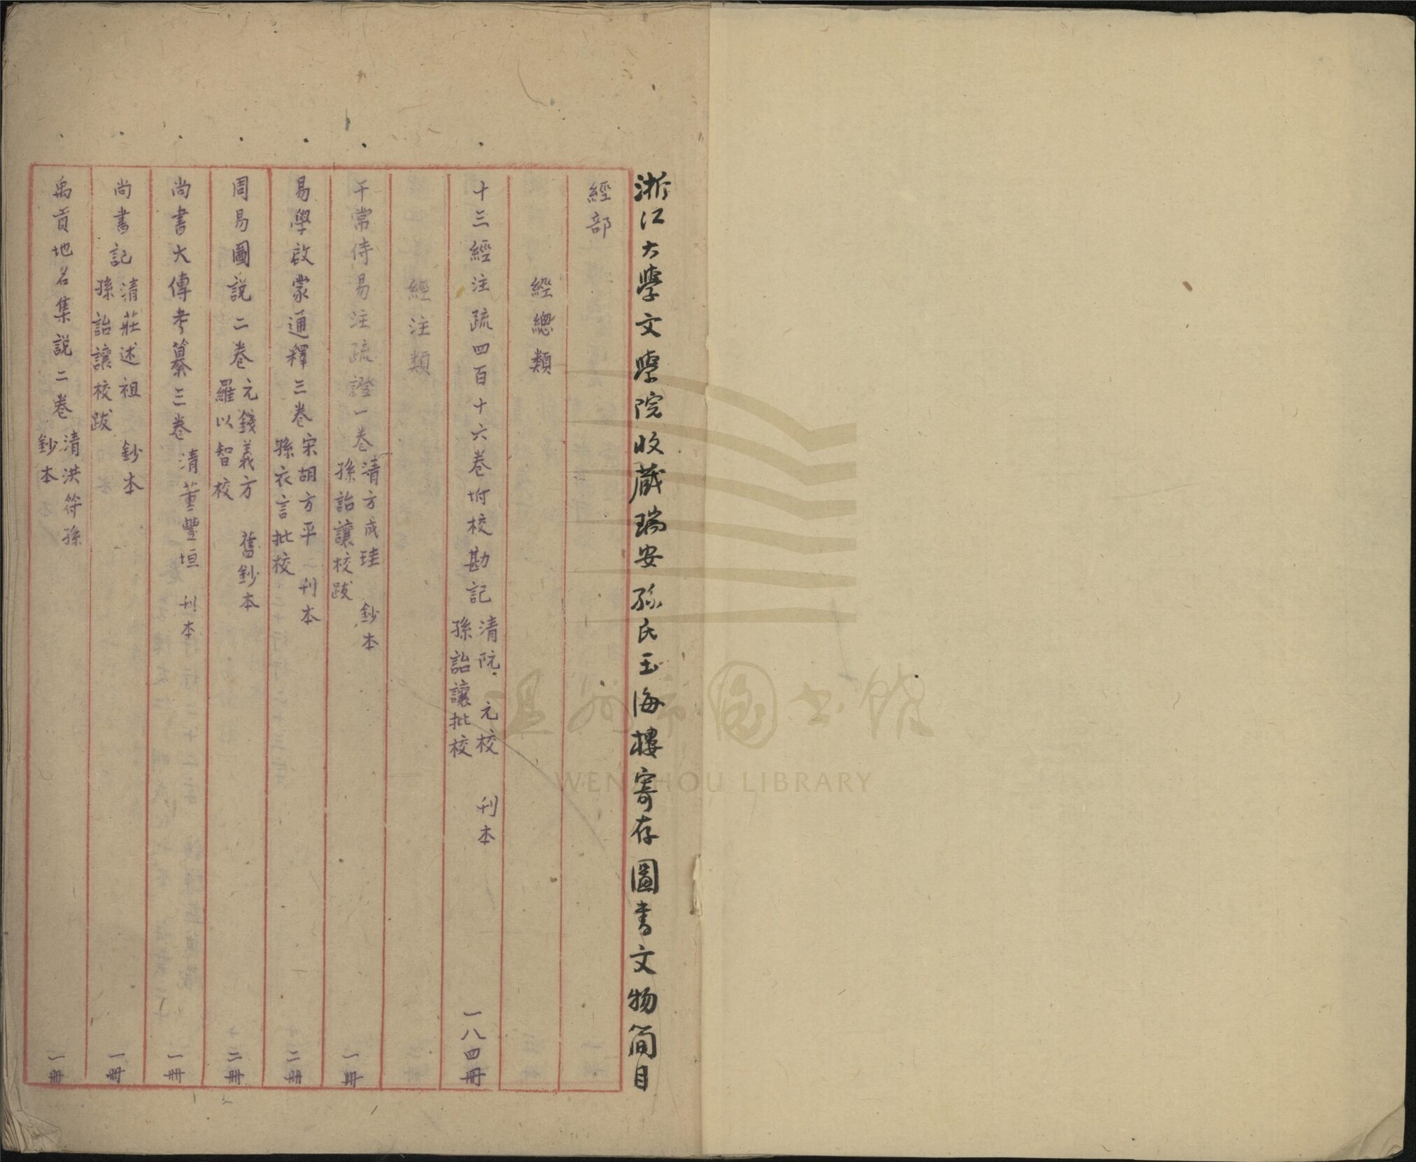 浙江大學文學院收藏瑞安孫氏玉海樓寄存圖書文物簡目
經部
經總類
十三經注疏四百十六卷坿校勘記 清阮元校 孫詒讓批校 刊本 一八四冊
經注類
干常侍易注疏證一卷 清方成珪 孫詒讓校跋 鈔本 一冊
易學啟蒙通釋三卷 宋胡方平 孫衣言批校 刊本 二冊
周易圖説二卷 元錢義方 羅以智校 舊鈔本 二冊
尚書大傳考纂三卷 清董豐垣 刊本 一冊
尚書記 清莊述祖 孫詒讓校跋 鈔本 一冊
禹貢地名集説二卷 清洪符孫 鈔本 一冊
温州市图书馆
WENZHOU LIBRARY